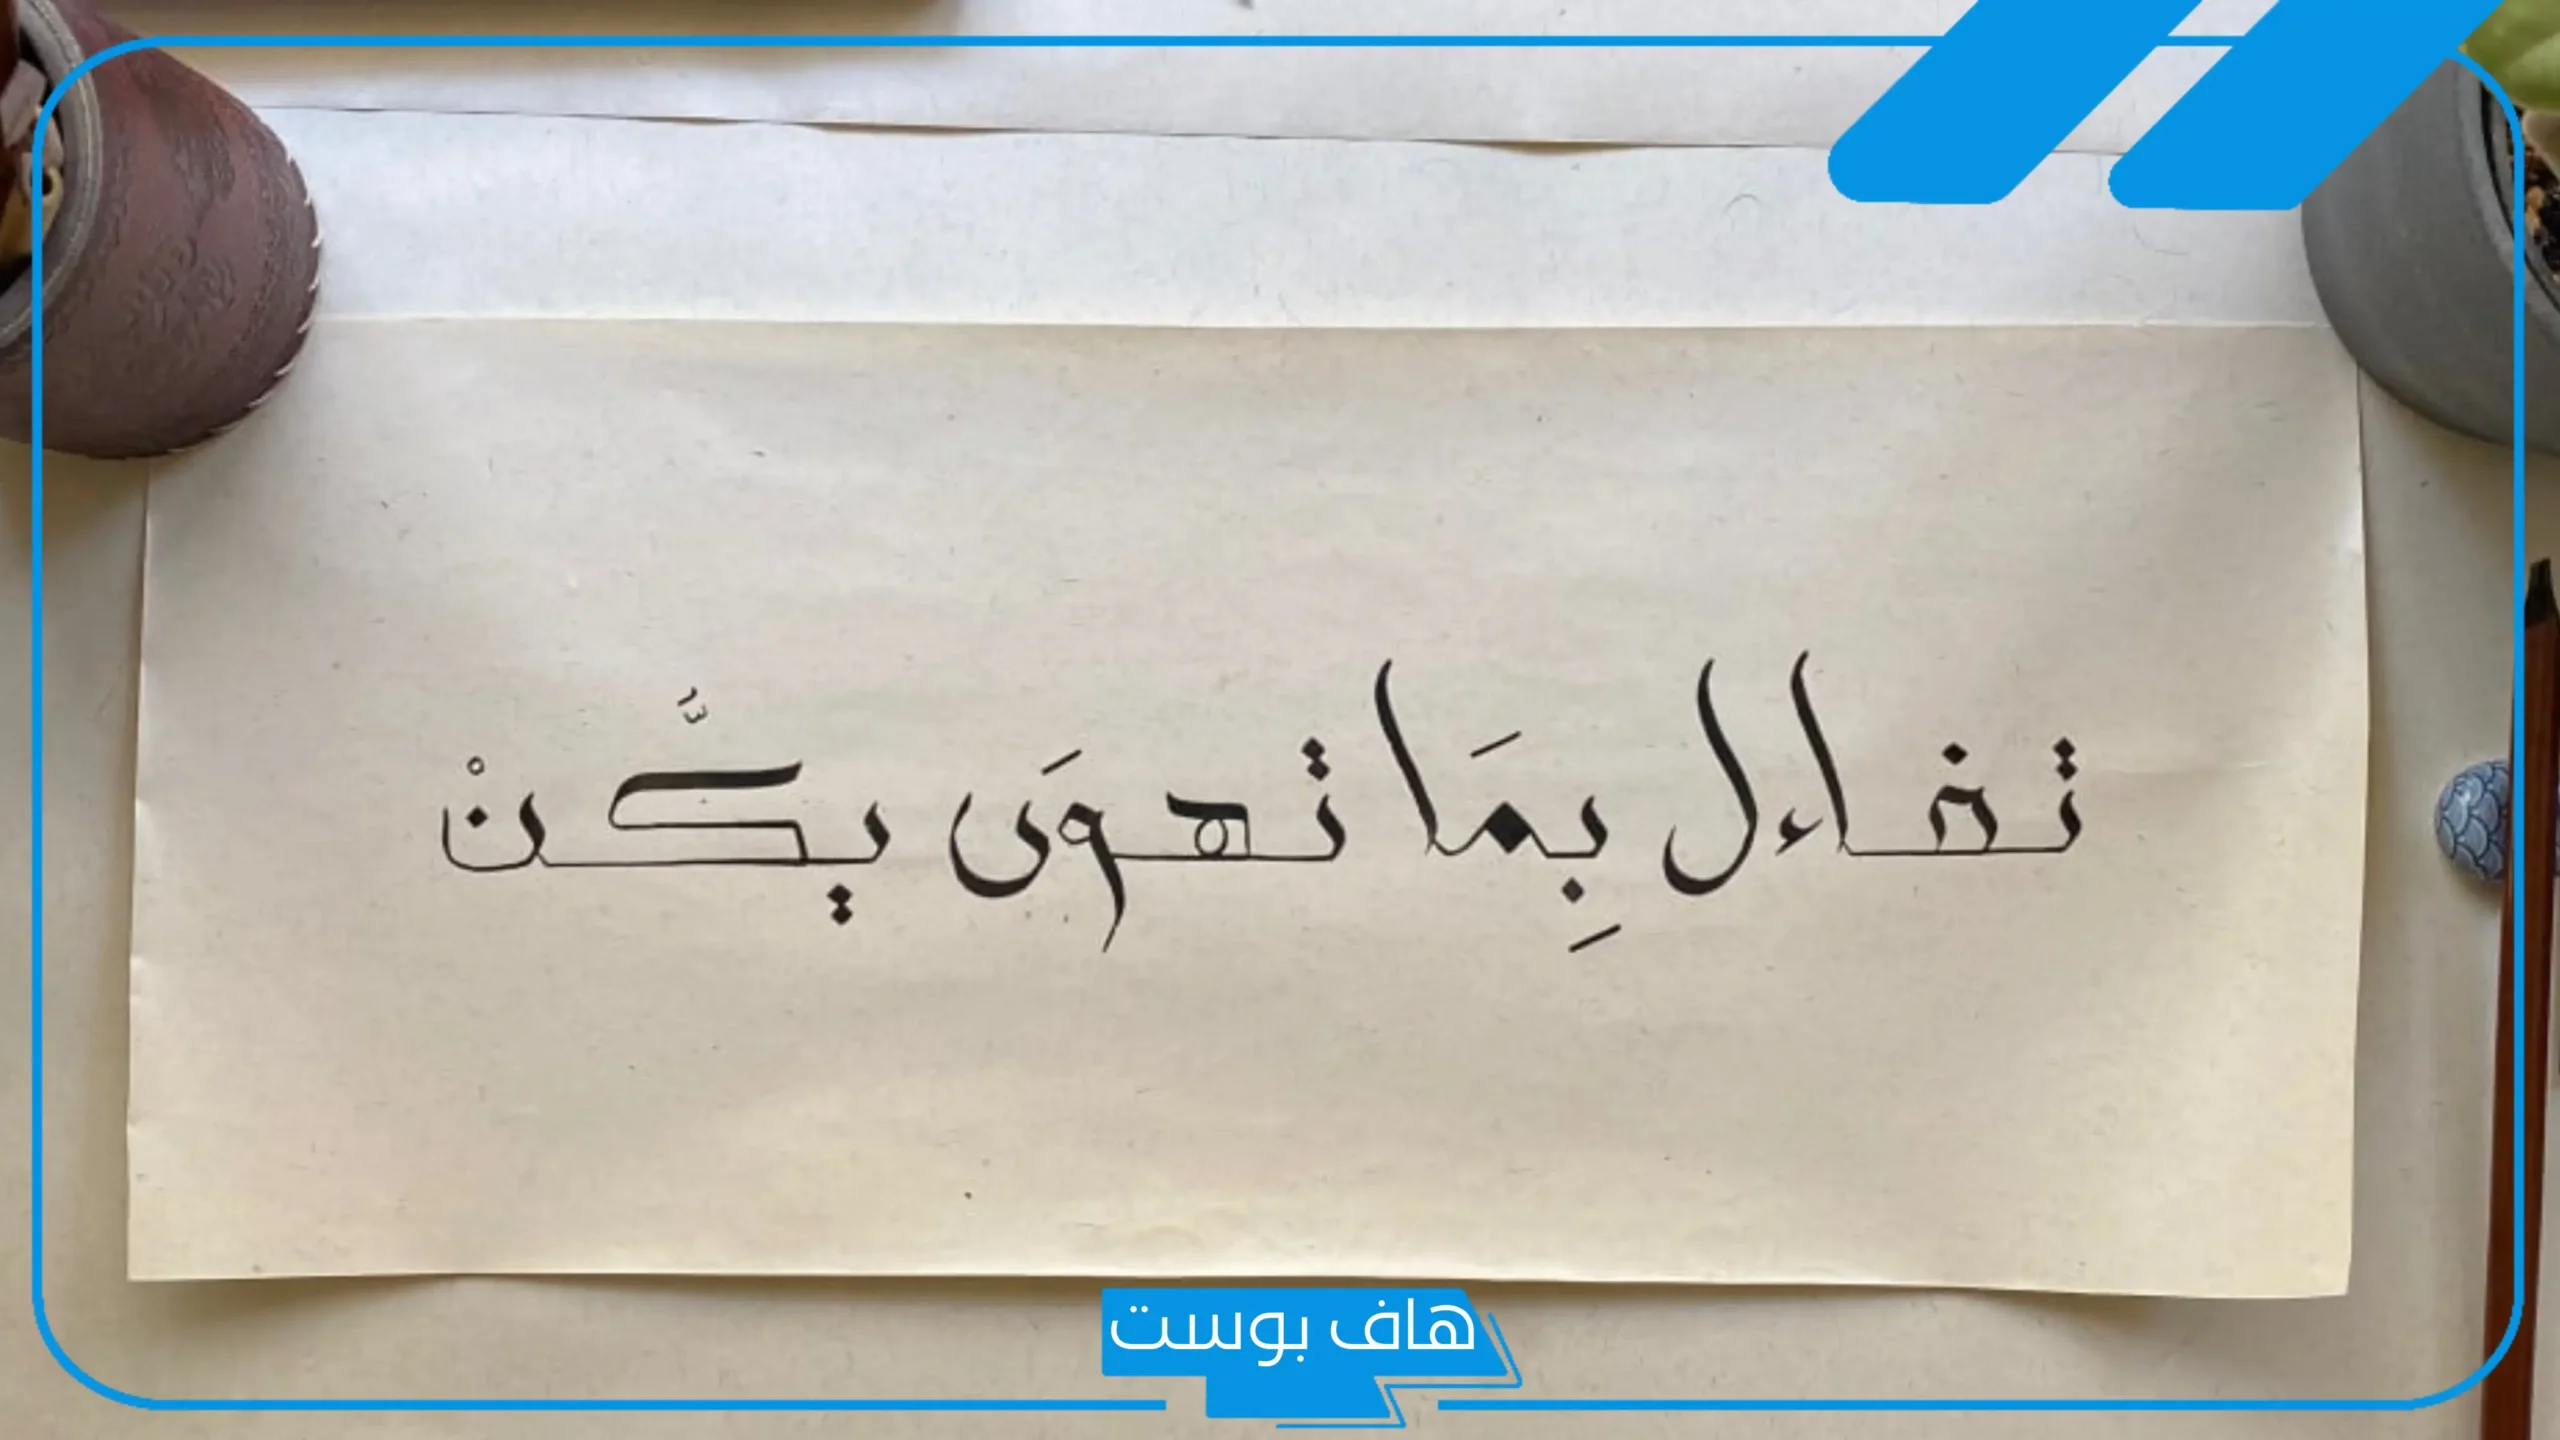 تفاءل بِمَا تهوَى يكَّنْ
هاف بوست